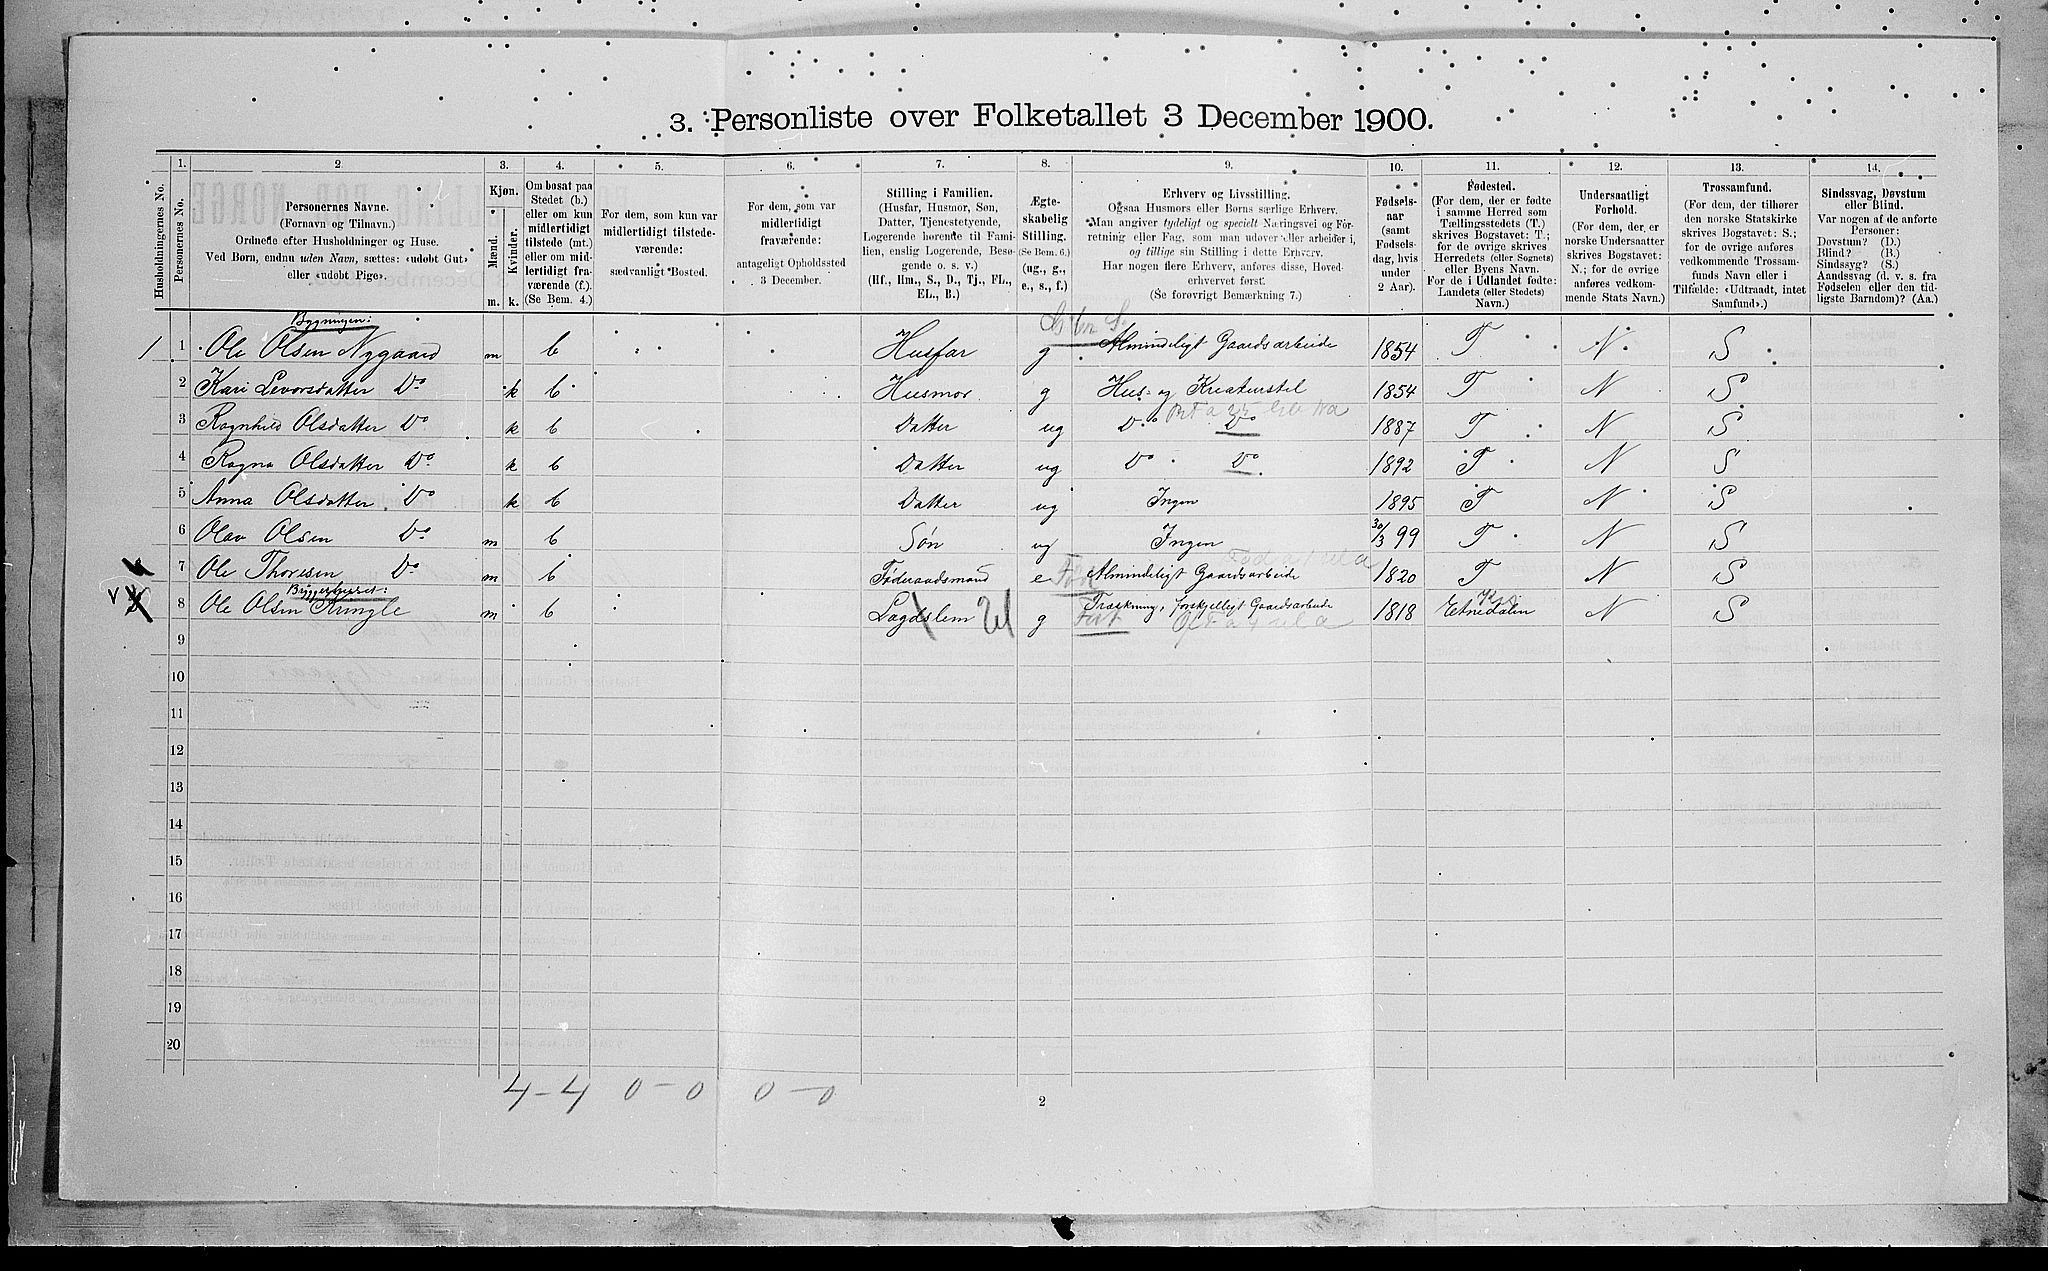 3. Personliste over Folketallet 3 December 1900.
Husholdningernes No.
1.
Personernes No.
2.
Personernes Navne.
(Fornavn og Tilnavn.)
Ordnede efter Husholdninger og Huse.
Ved Børn, endnu uden Navn, sættes: «udøbt Gut»
eller «udøbt Pige».
3.
Kjøn.
Mænd.
Kvinder.
m.
k.
4.
Om bosat paa
Stedet (b.)
eller om kun
midlertidigt
tilstede (mt.)
eller om mid-
lertidigt fra-
værende (f.).
(Se Bem. 4.)
5.
For dem, som kun var
midlertidigt tilstede-
værende:
sædvanligt Bosted.
6.
For dem, som var
midlertidigt
fraværende:
antageligt Opholdssted
3 December.
7.
Stilling i Familien.
(Husfar, Husmor, Søn,
Datter, Tjenestetyende,
Logerende hørende til Fami-
lien, enslig Logerende, Besø-
gende o. s. v.)
(Hf., Hm., S., D., Tj., FL.,
EL., B.)
8.
Ægte-
skabelig
Stilling.
(Se Bem. 6.)
(ug., g.,
e., s., f.)
9.
Erhverv og Livsstilling.
Ogsaa Husmors eller Børns særlige Erhverv.
Man angiver tydeligt og specielt Næringsvei og For-
retning eller Fag, som man udøver eller arbeider i,
og tillige sin Stilling i dette Erhverv.
Har nogen flere Erhverv, anføres disse, Hoved-
erhvervet først.
(Se forøvrigt Bemærkning 7.)
10.
Fødsels-
aar
(samt
Fødsels-
dag, hvis
under
2 Aar).
11.
Fødested.
(For dem, der er fødte
i samme Herred som
Tællingsstedets (T.)
skrives Bogstavet: T.;
for de øvrige skrives
Herredets (eller Sognets)
eller Byens Navn.
For de i Udlandet fødte:
Landets (eller Stedets)
Navn.)
12.
Undersaatligt
Forhold.
(For dem, der er
norske Undersaatter
skrives Bogstavet:
N.; for de øvrige
anføres vedkom-
mende Stats Navn.)
13.
Trossamfund.
(For dem, der tilhører
den norske Statskirke
skrives Bogstavet: S.;
for de øvrige anføres
vedkommende Trossam-
funds Navn eller i
Tilfælde: «Udtraadt, intet
Samfund».)
14.
Sindssvag, Døvstum
eller Blind.
Var nogen af de anførte
Personer:
Døvstum? (D.)
Blind? (B.)
Sindssyg? (S.)
Aandssvag (d. v. s. fra
Fødselen eller den tid-
ligste Barndom)? (Aa.)
Bygningen:
1 1 Ole Olsen Nygaard m b Husfar g Almindeligt Gaardsarbeide 1854 T N S
2 Kari Levorsdatter Do k b Husmor g Hus- og Kreaturstel 1854 T N S
3 Ragnhild Olsdatter Do k b Datter ug Do Do 1887 T N S
4 Ragna Olsdatter Do k b Datter ug Do Do 1892 T N S
5 Anna Olsdatter Do k b Datter ug Ingen 1895 T N S
6 Olav Olsen Do m b Søn ug Ingen 30/3 99 T N S
7 Ole Thoresen Do m b Føderaadsmand e Almindeligt Gaardsarbeide 1820 T N S
Bryggerhuset:
8 Ole Olsen Kringle m b Lægdslem g Træskning, forskjelligt Gaardsarbeide 1818 Etnedalen N S
9
10
11
12
13
14
15
16
17
18
19
20
4 - 4 0 - 0 0 - 0
2